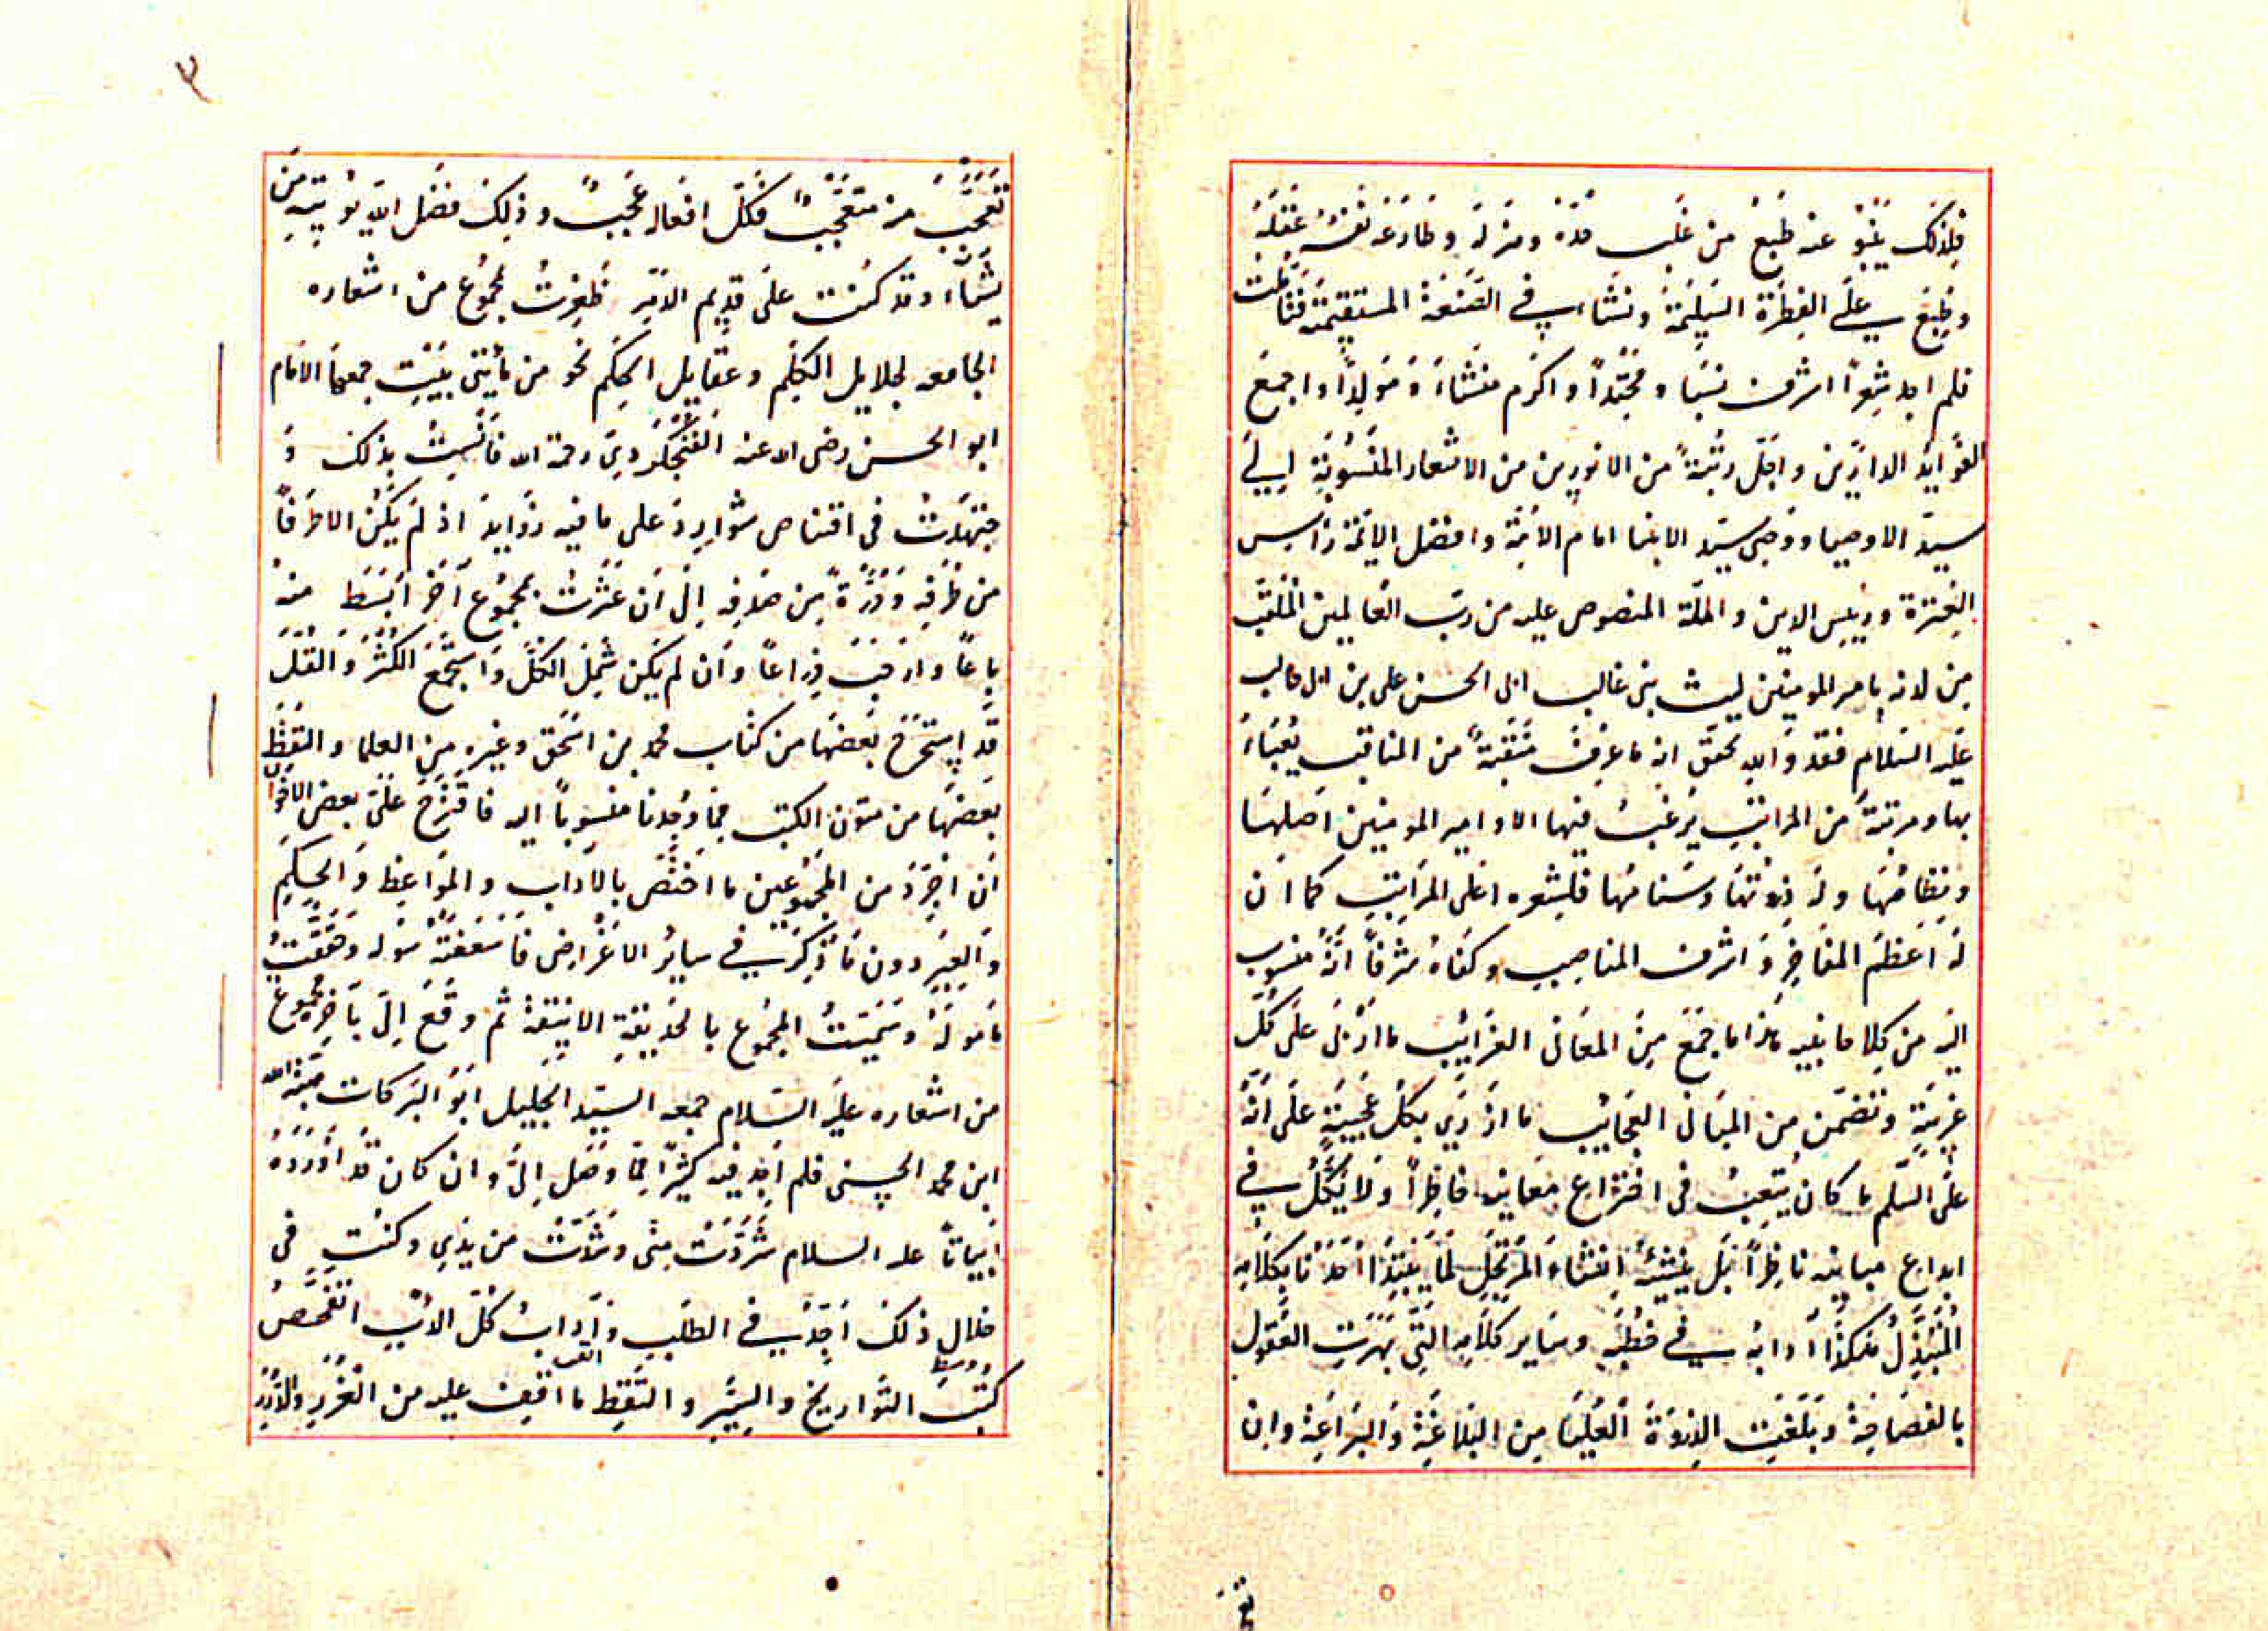 فلذلك ينبو عنه طبع من غلب قدّه وهزله وطاوعه نفسه عقله
وطبع على الفطرة السليمة ونشاء في الصنعة المستقيمة فتأملت
فلم اجد شعرًا اشرف نسبًا ومحتدًا واكرم منشاءً ومولدًا واجمع
لفوايد الدارين واجلّ رتبةً من الاشعار المنسوبة الى
سيد الاوصيا ووصى سيد الانبيا امام الامة وافضل الايمة راس
العترة ورييس الدين والملّة المنصوص عليه من رب العالمين الملقّب
من لدنه بامير المومنين ليث بنى غالب ابى الحسن على بن ابى طالب
عليه السلام فقد والله تحقق انه ما عرف منقبةً من المناقب يُعبَاءُ
بها ومرتبةً من المراتب يرغب فيها الا وامير المومنين اصلها
ونظامها وله ذروتها وسنامها فلشعره اعلى المراتب كما ان
له اعظم المفاخر واشرف المناصب وكفاه شرفًا انّه منسوب
اليه من كلامه ما جمع من المعانى الغرايب ما اربى على كل
غريبةٍ وتضمّن من المبانى العجايب ما ازرى بكل عجيبةٍ على انّه
على السلم ما كان يتعب فى اختراع معانيه خاطرًا ولا يكلّ في
ابداع مبانيه ناظرًا بل ينشئه انشاء المرتجل
المبتذل هكذا آدابه في خطبه وساير كلامه التى بهرت العقول
بالفصاحة وبلغت الذروة العليا من البلاغة والبراعة وان
تعجب
٣
تعجب من متعجبًا فكل افعاله عجب وذلك فضل الله يوتيه من
يشاء وقد كنت على قديم الامر ظفرت بمجموع من اشعاره
الجامعه لجلايل الكلم وعقايل الحكم نحو من مأيتى بيت جمعها الامام
ابو الحسن رضى الله عنه الفنجكردى رحمة الله فأنست بذلك و
جتهدت فى اقتناص شوارد على ما فيه زوايد اذ لم يكن الا طرفًا
من طرفه ودرّةً من صدفه الى ان عثرت بمجموع آخر ابسط منه
باعًا وارحب ذراعًا وان لم يكن شمل الكل واستجمع الكثر والقل
قد استخرج بعضها من كتاب محمد بن اسحق وغيره من العلما والتقط
بعضها من متون الكتب مما وجدنا منسوبًا اليه فاقترح علىّ بعض الاخوان
ان اجرّد من المجموعين ما اختص بالاداب والمواعظ والحكم
والعبر دون ما ذكر في ساير الاغراض فاسعفته سوله وحققت
مأموله وسميت المجموع بالحديقة الانيقة ثم وقع الىّ بآخره مجموع
من اشعاره عليه السلام جمعه السيد الجليل ابو البركات هبة الله
ابن محمد الحسنى فلم اجد فيه كثيرًا مما وصل الىّ وان كان قد اورده
ابياتًا عليه السلام شردت منى وندّت من يدي وكنت فى
خلال ذلك اجدّ في الطلب وآداب كل الداب اتفحص
كتب التواريخ والسير والتقط ما اقف عليه من الغرر والدرر